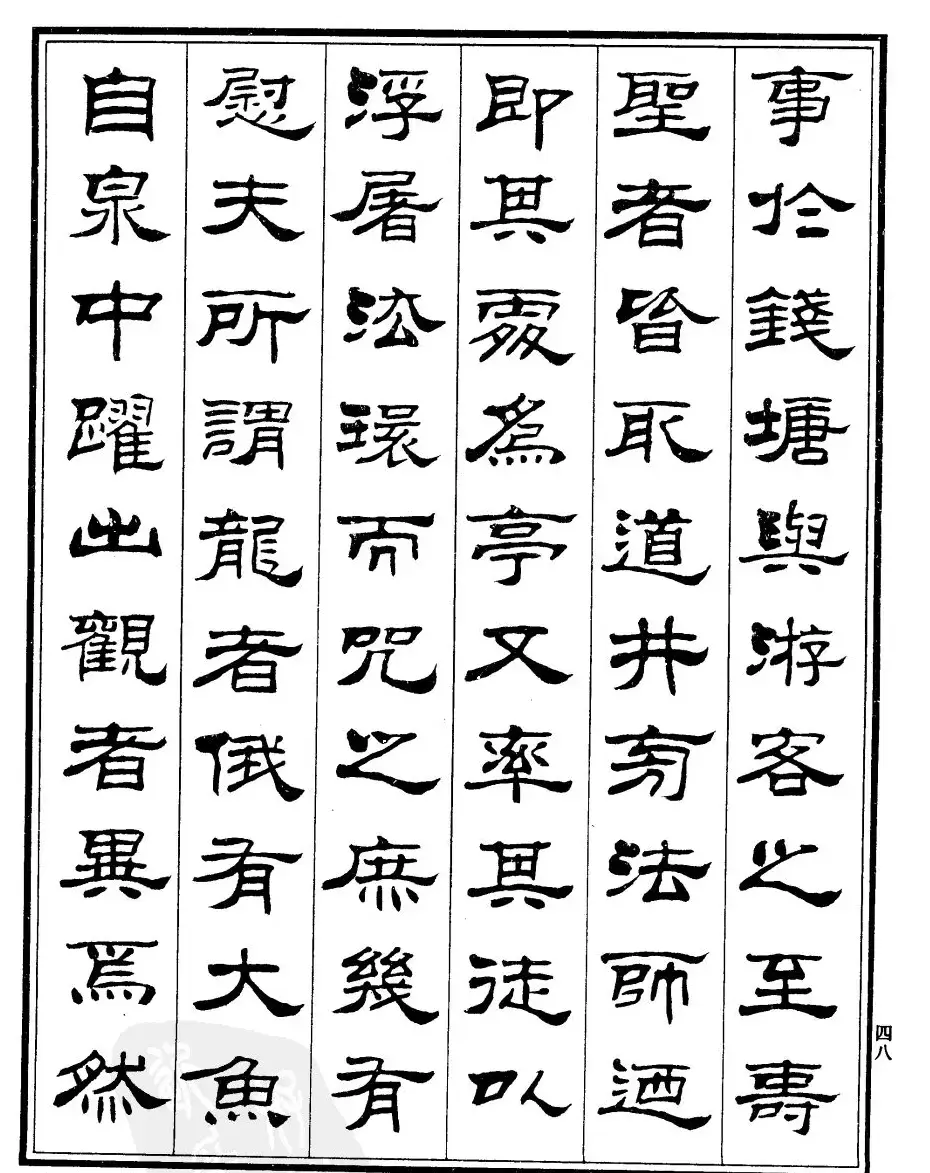 事於錢塘與游客之至壽
聖者皆取道井旁法師迺
即其處為亭又率其徒以
浮屠法環而咒之庶幾有
慰夫所謂龍者俄有大魚
自泉中躍出觀者異焉然
四八